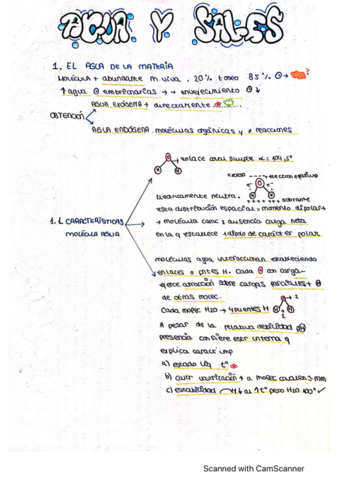 AGUA Y SALES
1. EL AGUA DE LA MATERIA
MOLÉCULA + abundante m. viva. 20% tejido 85%
↑ agua embrionarias → envejecimiento ↓
AGUA EXÓGENA → directamente
OBTENCIÓN
AGUA ENDÓGENA. moléculas orgánicas y ≠ reacciones
→ enlace coval simple α = 104,5°
exceso electronegativo
1.1. CARACTERÍSTICAS
MOLÉCULA AGUA
Eléctricamente neutra.
esta distribución espacial = momento dipolar
→ molécula carac x ausencia carga neta
en la q establece 1 dipolo de carácter polar
moléculas agua interaccionan estableciendo
enlaces o ptes H. Cada con carga -
ejerce atracción sobre cargas parciales +
de otras molec.
Cada molec H2O → 4 puentes H
A pesar de la relativa debilidad
presencia confiere cser interna q
explica caract imp
a) estado líq t°
b) + a molec covalen
c) estabilidad al 1 t° pero H2O 100° ✓
Scanned with CamScanner